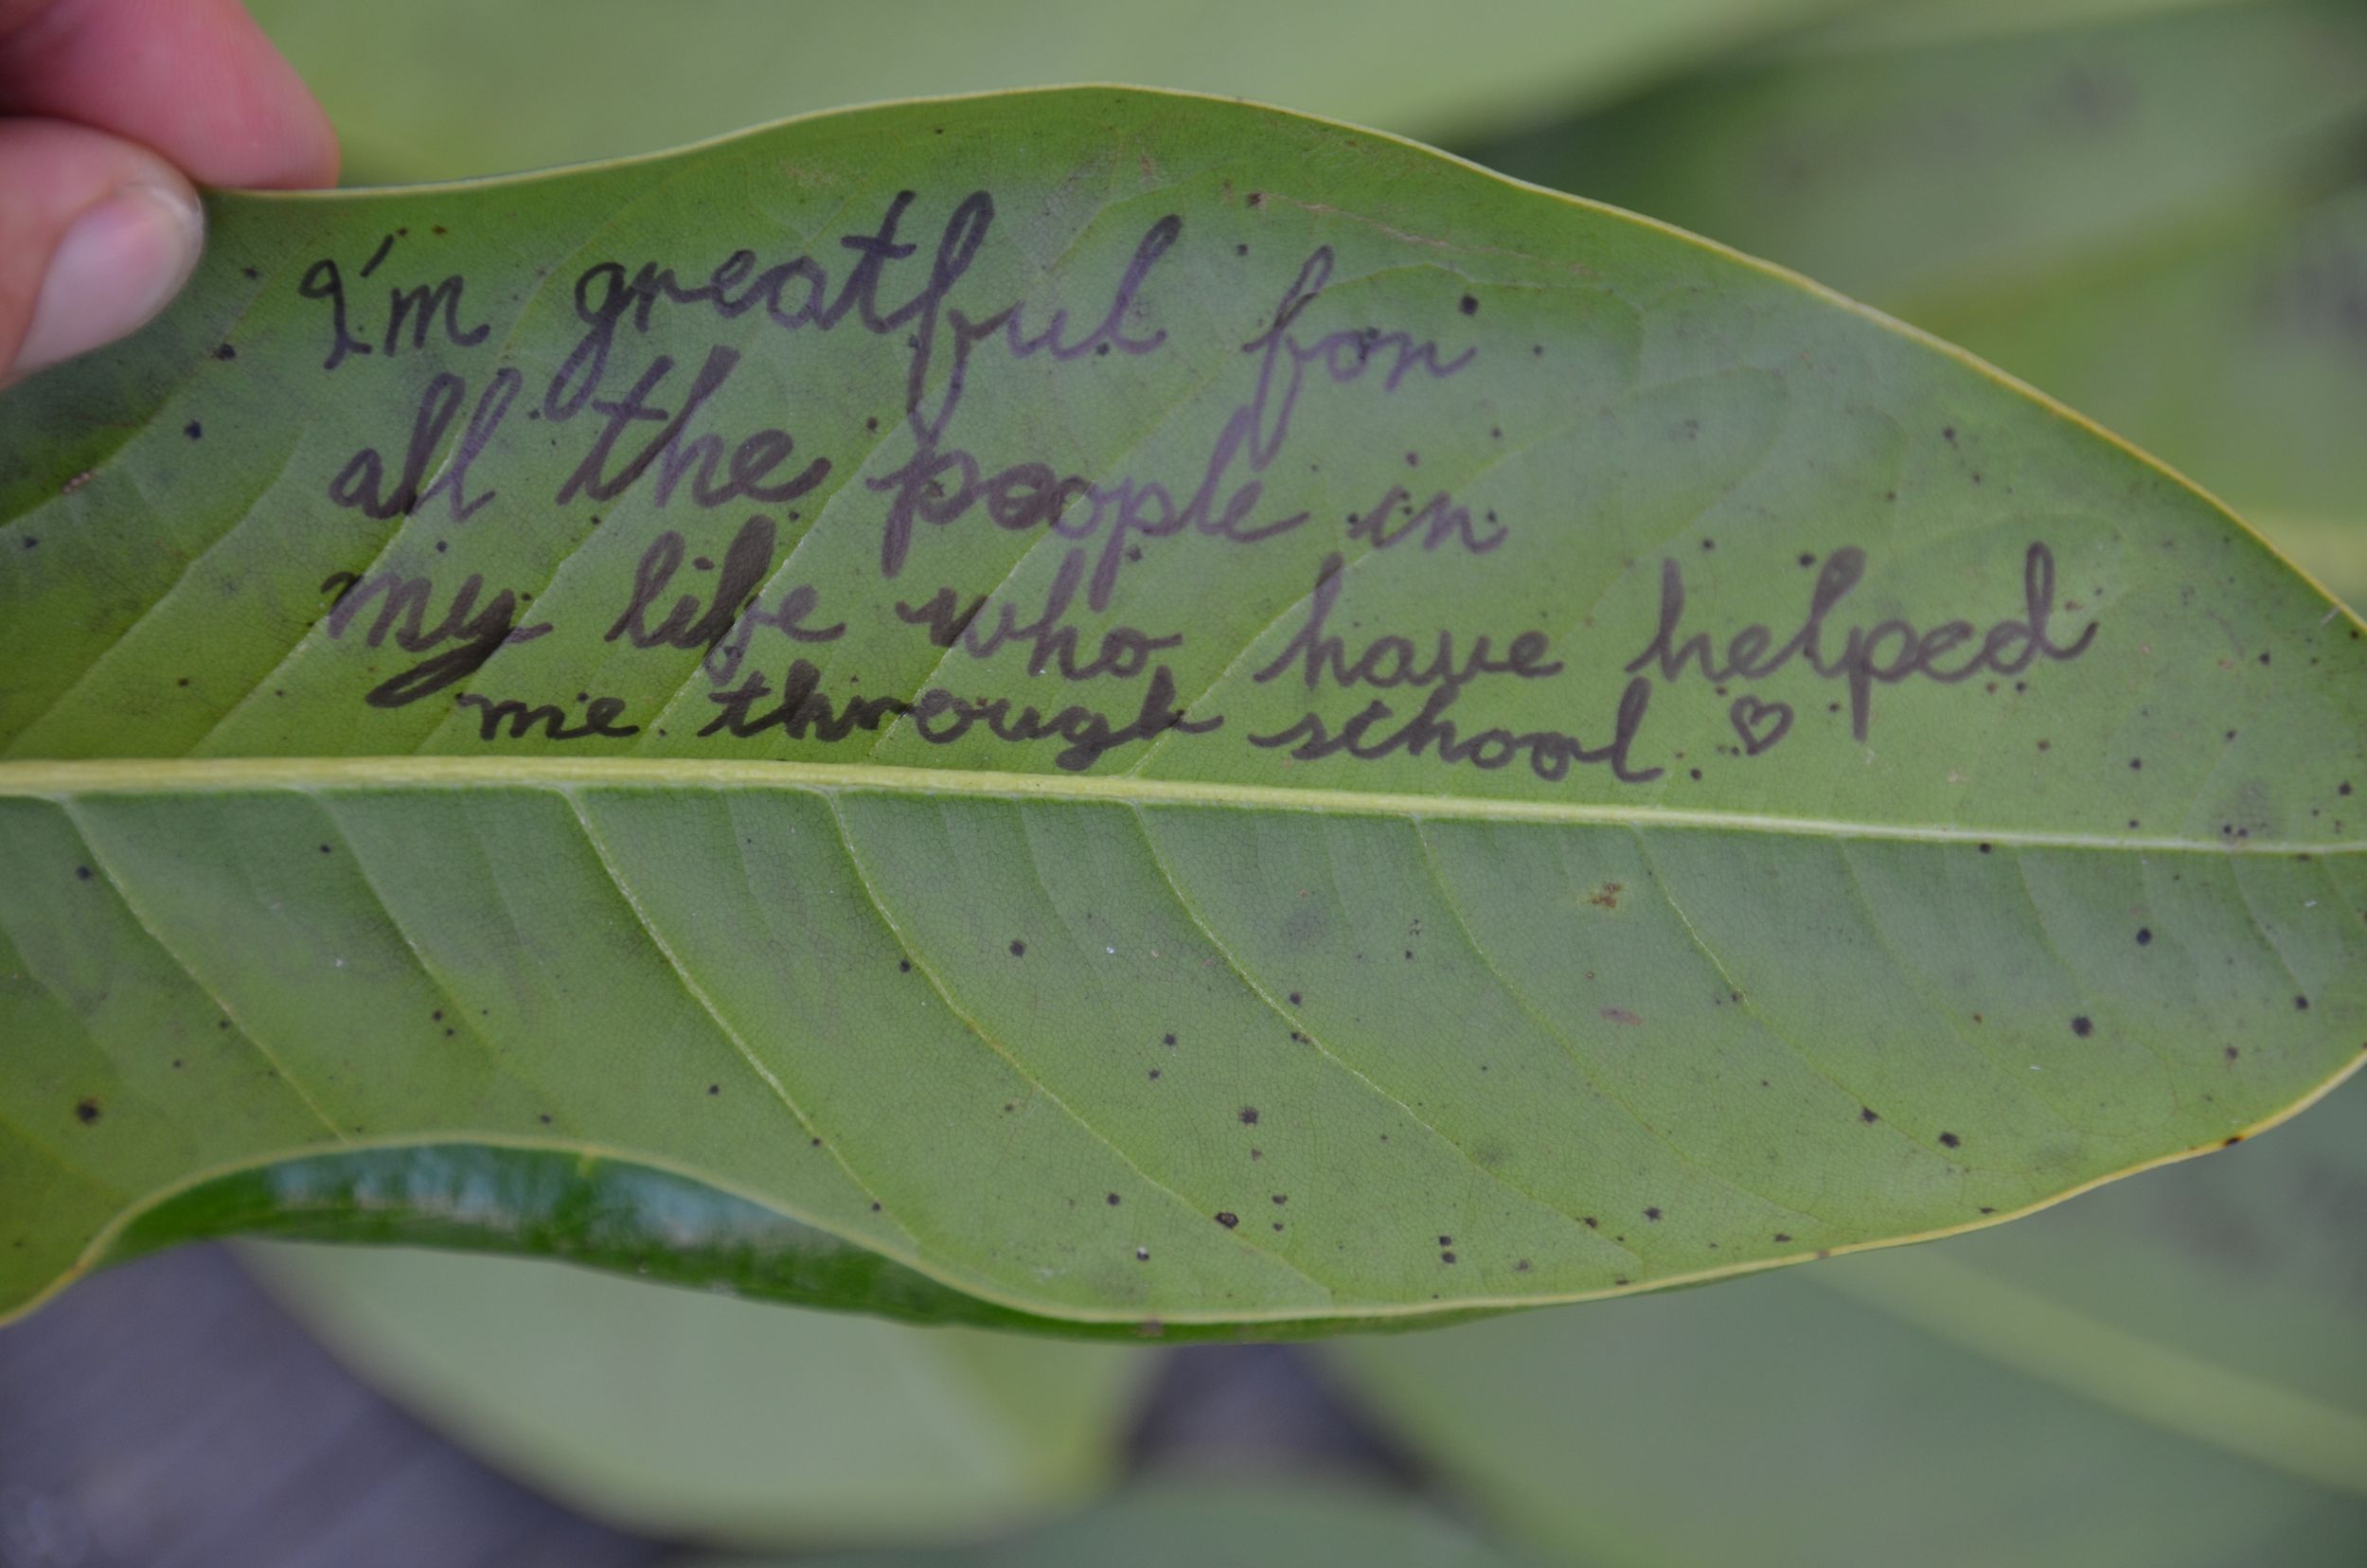 I'm greatful for
all the people in
my life who have helped
me through school. ♡